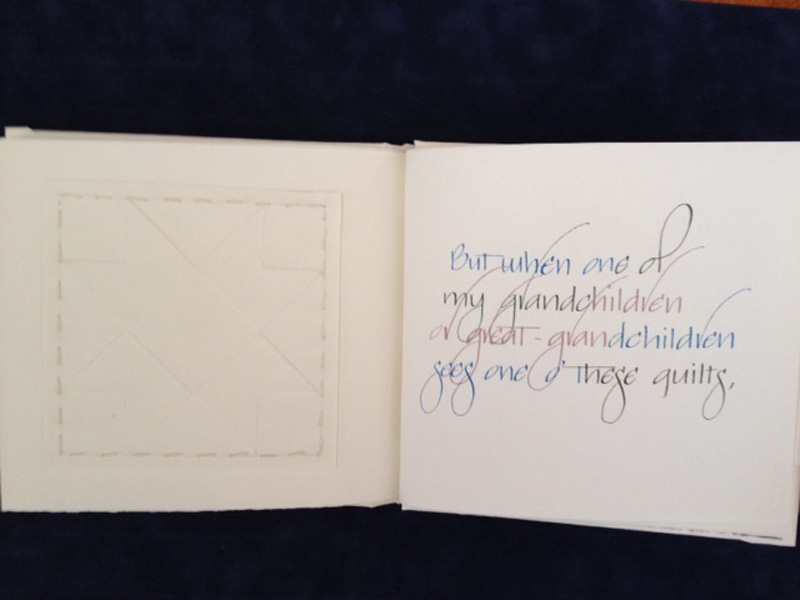 But when one of
my grandchildren
or great-grandchildren
sees one o' these quilts,